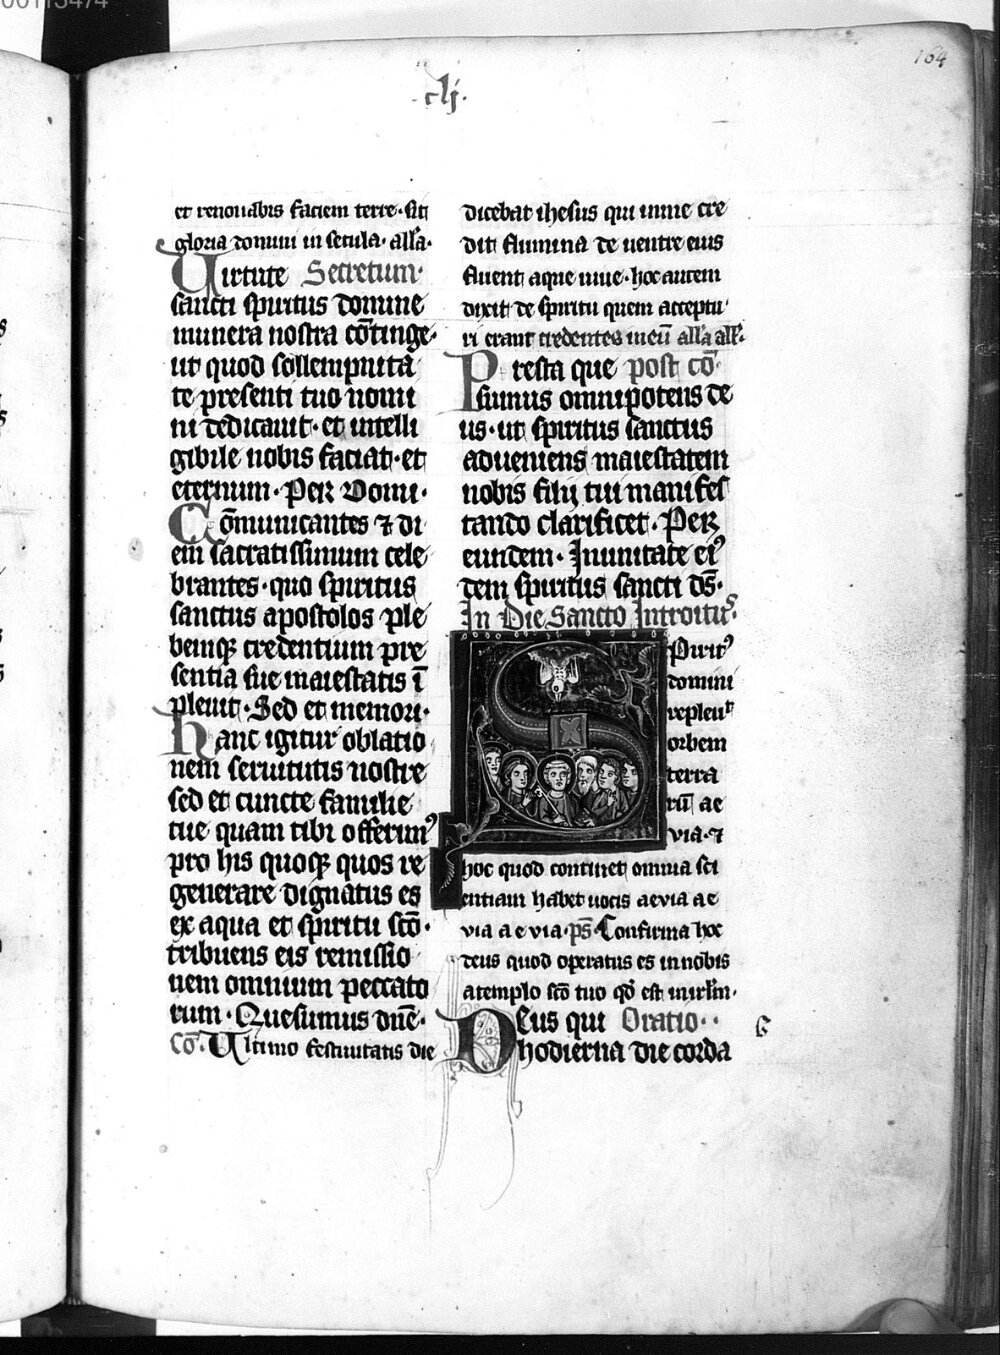 00113474
164
clj.
et renouabis faciem terre. sit
gloria domini in secula. alla.
Uirtute Secretum.
sancti spiritus domine
munera nostra cōtinge.
ut quod sollempnita
te presenti tuo nomi
ni dedicauit. et intelli
gibile nobis faciat. et
eternum. Per Domi.
Cōmunicantes ⁊ di
em sacratissimum cele
brantes. quo spiritus
sanctus apostolos ple
bemqꝫ credentium pre
sentia sue maiestatis ī
pleuit. Sed et memori.
hanc igitur oblatio
nem seruitutis nostre
sed et cuncte familie
tue quam tibi offerimꝰ
pro his quoqꝫ quos re
generare dignatus es
ex aqua et spiritu sc̄o.
tribuens eis remissio
nem omnium peccato
rum. Quesumus dn̄e.
Cō. Ultimo festiuitatis die
dicebat ihesus qui in me cre
dit flumina de uentre eius
fluent aque uiue. hoc autem
dixit de spiritu quem acceptu
ri erant credentes in eū alla all̄a.
Presta que post cō.
sumus omnipotens de
us. ut spiritus sanctus
adueniens maiestatem
nobis filij tui manifes
tando clarificet. Per
eundem. In unitate eiꝰ
dem spiritus sancti ds̄.
In Die Sancto Introitus.
Spiritꝰ
domini
repleuit
orbem
terra
rū ae
uia. ⁊
hoc quod continet omnia sci
entiam habet uocis aeuia ae
uia a e uia. ps̄. Confirma hoc
deus quod operatus es in nobis
a templo sc̄o tuo qd̄ est in irl̄m.
Deus qui Oratio..
hodierna die corda